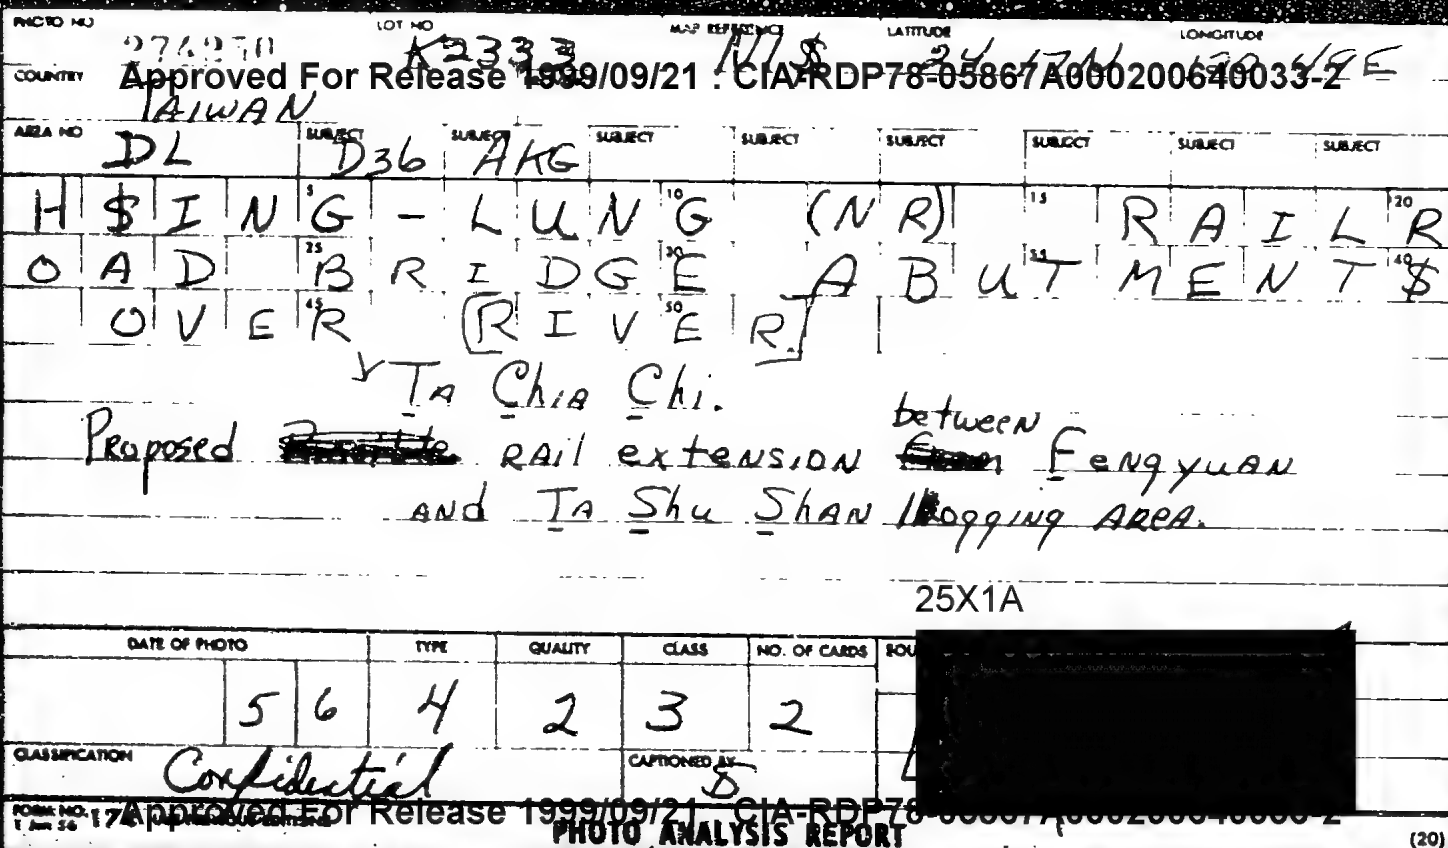 PHOTO NO LOT NO MAP REFERENCE LATITUDE LONGITUDE
K2333 N1$ 24 17N 120 49E
COUNTRY Approved For Release 1999/09/21 : CIA-RDP78-05867A000200640033-2
TAIWAN
AREA NO SUBJECT SUBJECT SUBJECT SUBJECT SUBJECT SUBJECT SUBJECT SUBJECT
DL D36 AKG
5 10 15 20
H$ING-LUNG (NR) RAILR
25 30 35 40
OAD BRIDGE ABUTMENT$
45 50
OVER [RIVER.]
Ta Chia Chi.
between
Proposed rail extension Fengyuan
and Ta Shu Shan logging area.
25X1A
DATE OF PHOTO TYPE QUALITY CLASS NO. OF CARDS SOU
56 4 2 3 2
CLASSIFICATION Confidential CAPTIONED BY
FORM NO. 17 Approved For Release 1999/09/21 : CIA-RDP78-05867A000200640033-2
1 Jun 56
PHOTO ANALYSIS REPORT (20)